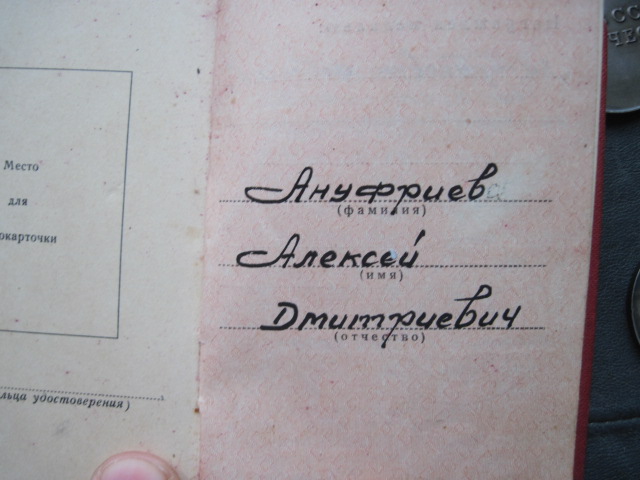 Место
для
окарточки
льца удостоверения)
Ануфриев
(фамилия)
Алексей
(имя)
Дмитриевич
(отчество)
СС
ЧЕС